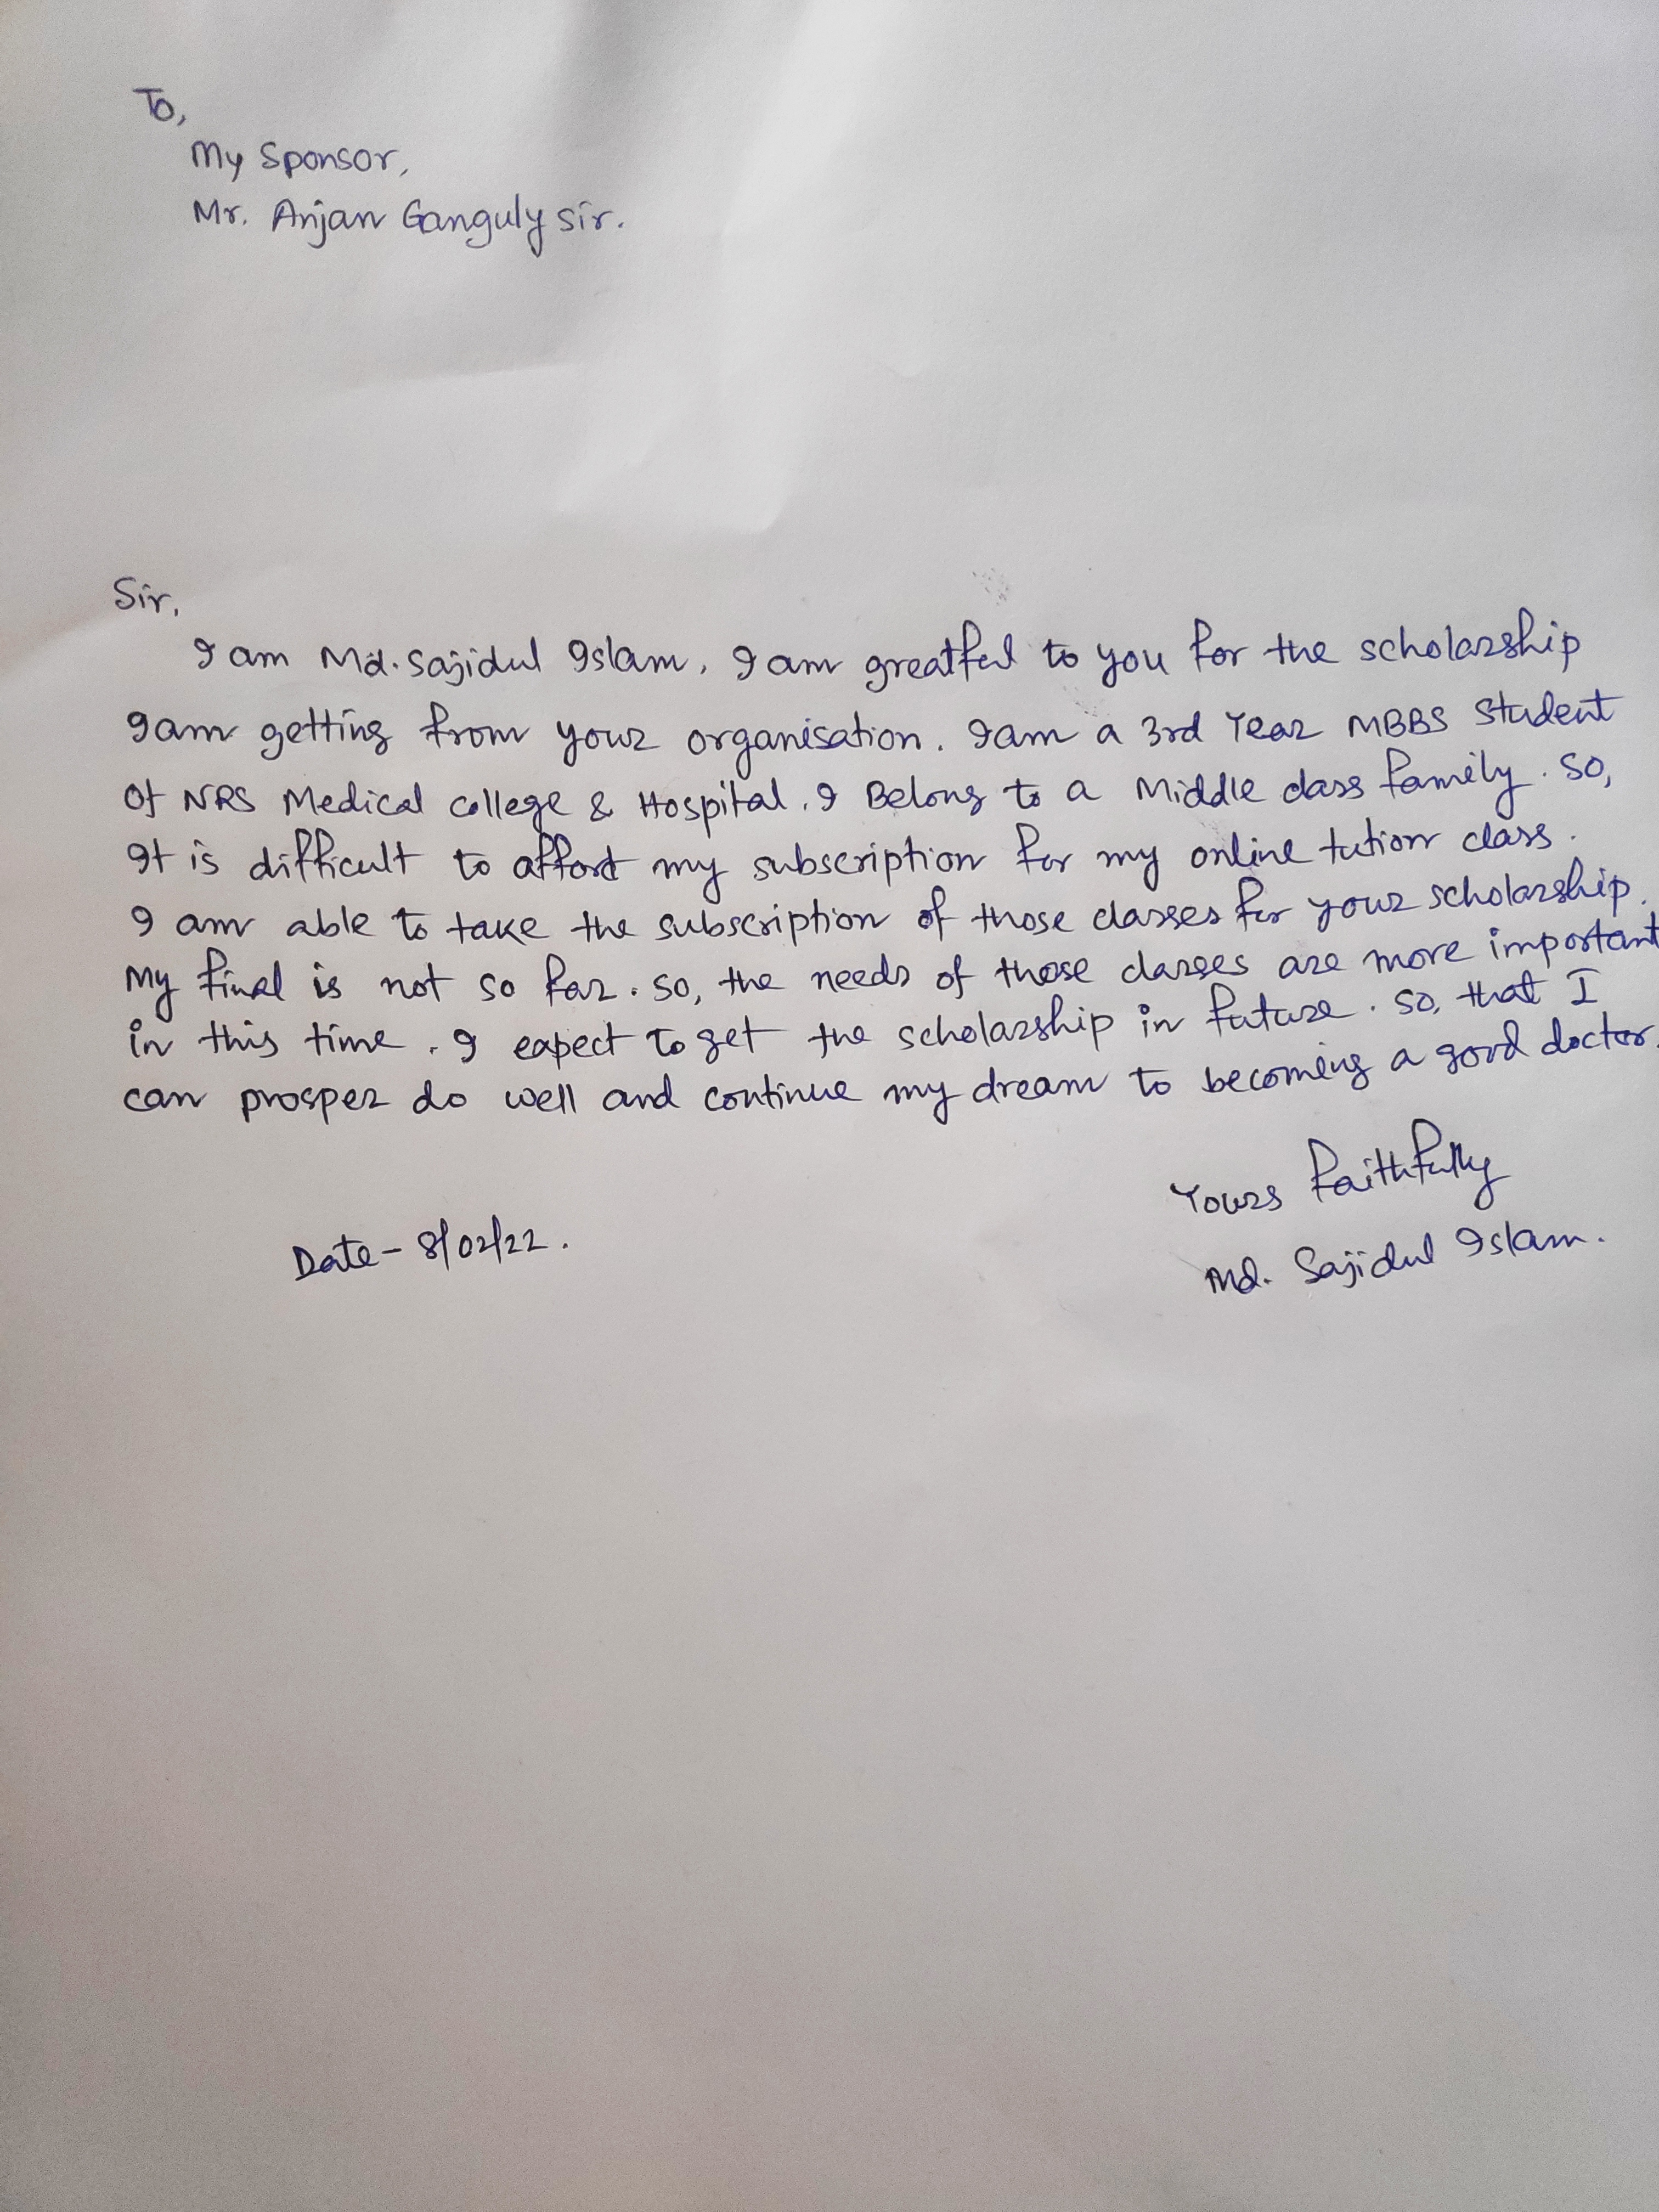 To,
My Sponsor,
Mr. Anjan Ganguly sir.
Sir,
I am Md. Sajidul Islam, I am greatful to you for the scholarship
I am getting from your organisation. I am a 3rd Year MBBS Student
Of NRS Medical college & Hospital. I Belong to a Middle class family. So,
It is difficult to afford my subscription for my online tution class.
I am able to take the subscription of those classes for your scholarship.
My final is not so far. So, the needs of those classes are more important
in this time. I expect to get the scholarship in future. So, that I
can prosper do well and continue my dream to becoming a good doctor.
Yours faithfully
Date - 8/02/22.
Md. Sajidul Islam.